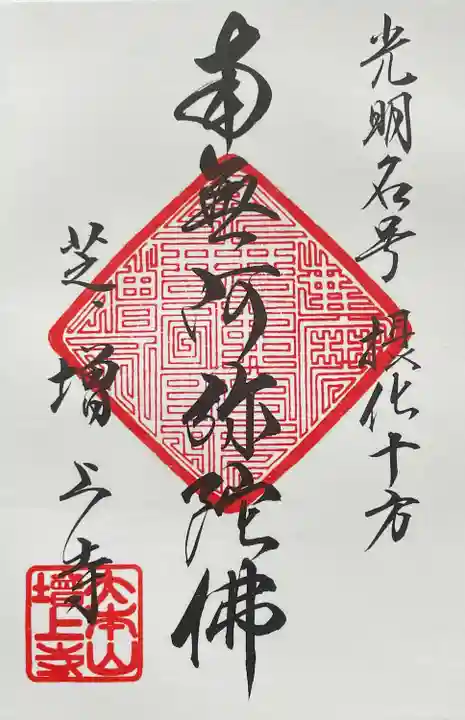 光明名号 摂化十方
南無阿弥陀佛
芝 増上寺
大本山
増上寺